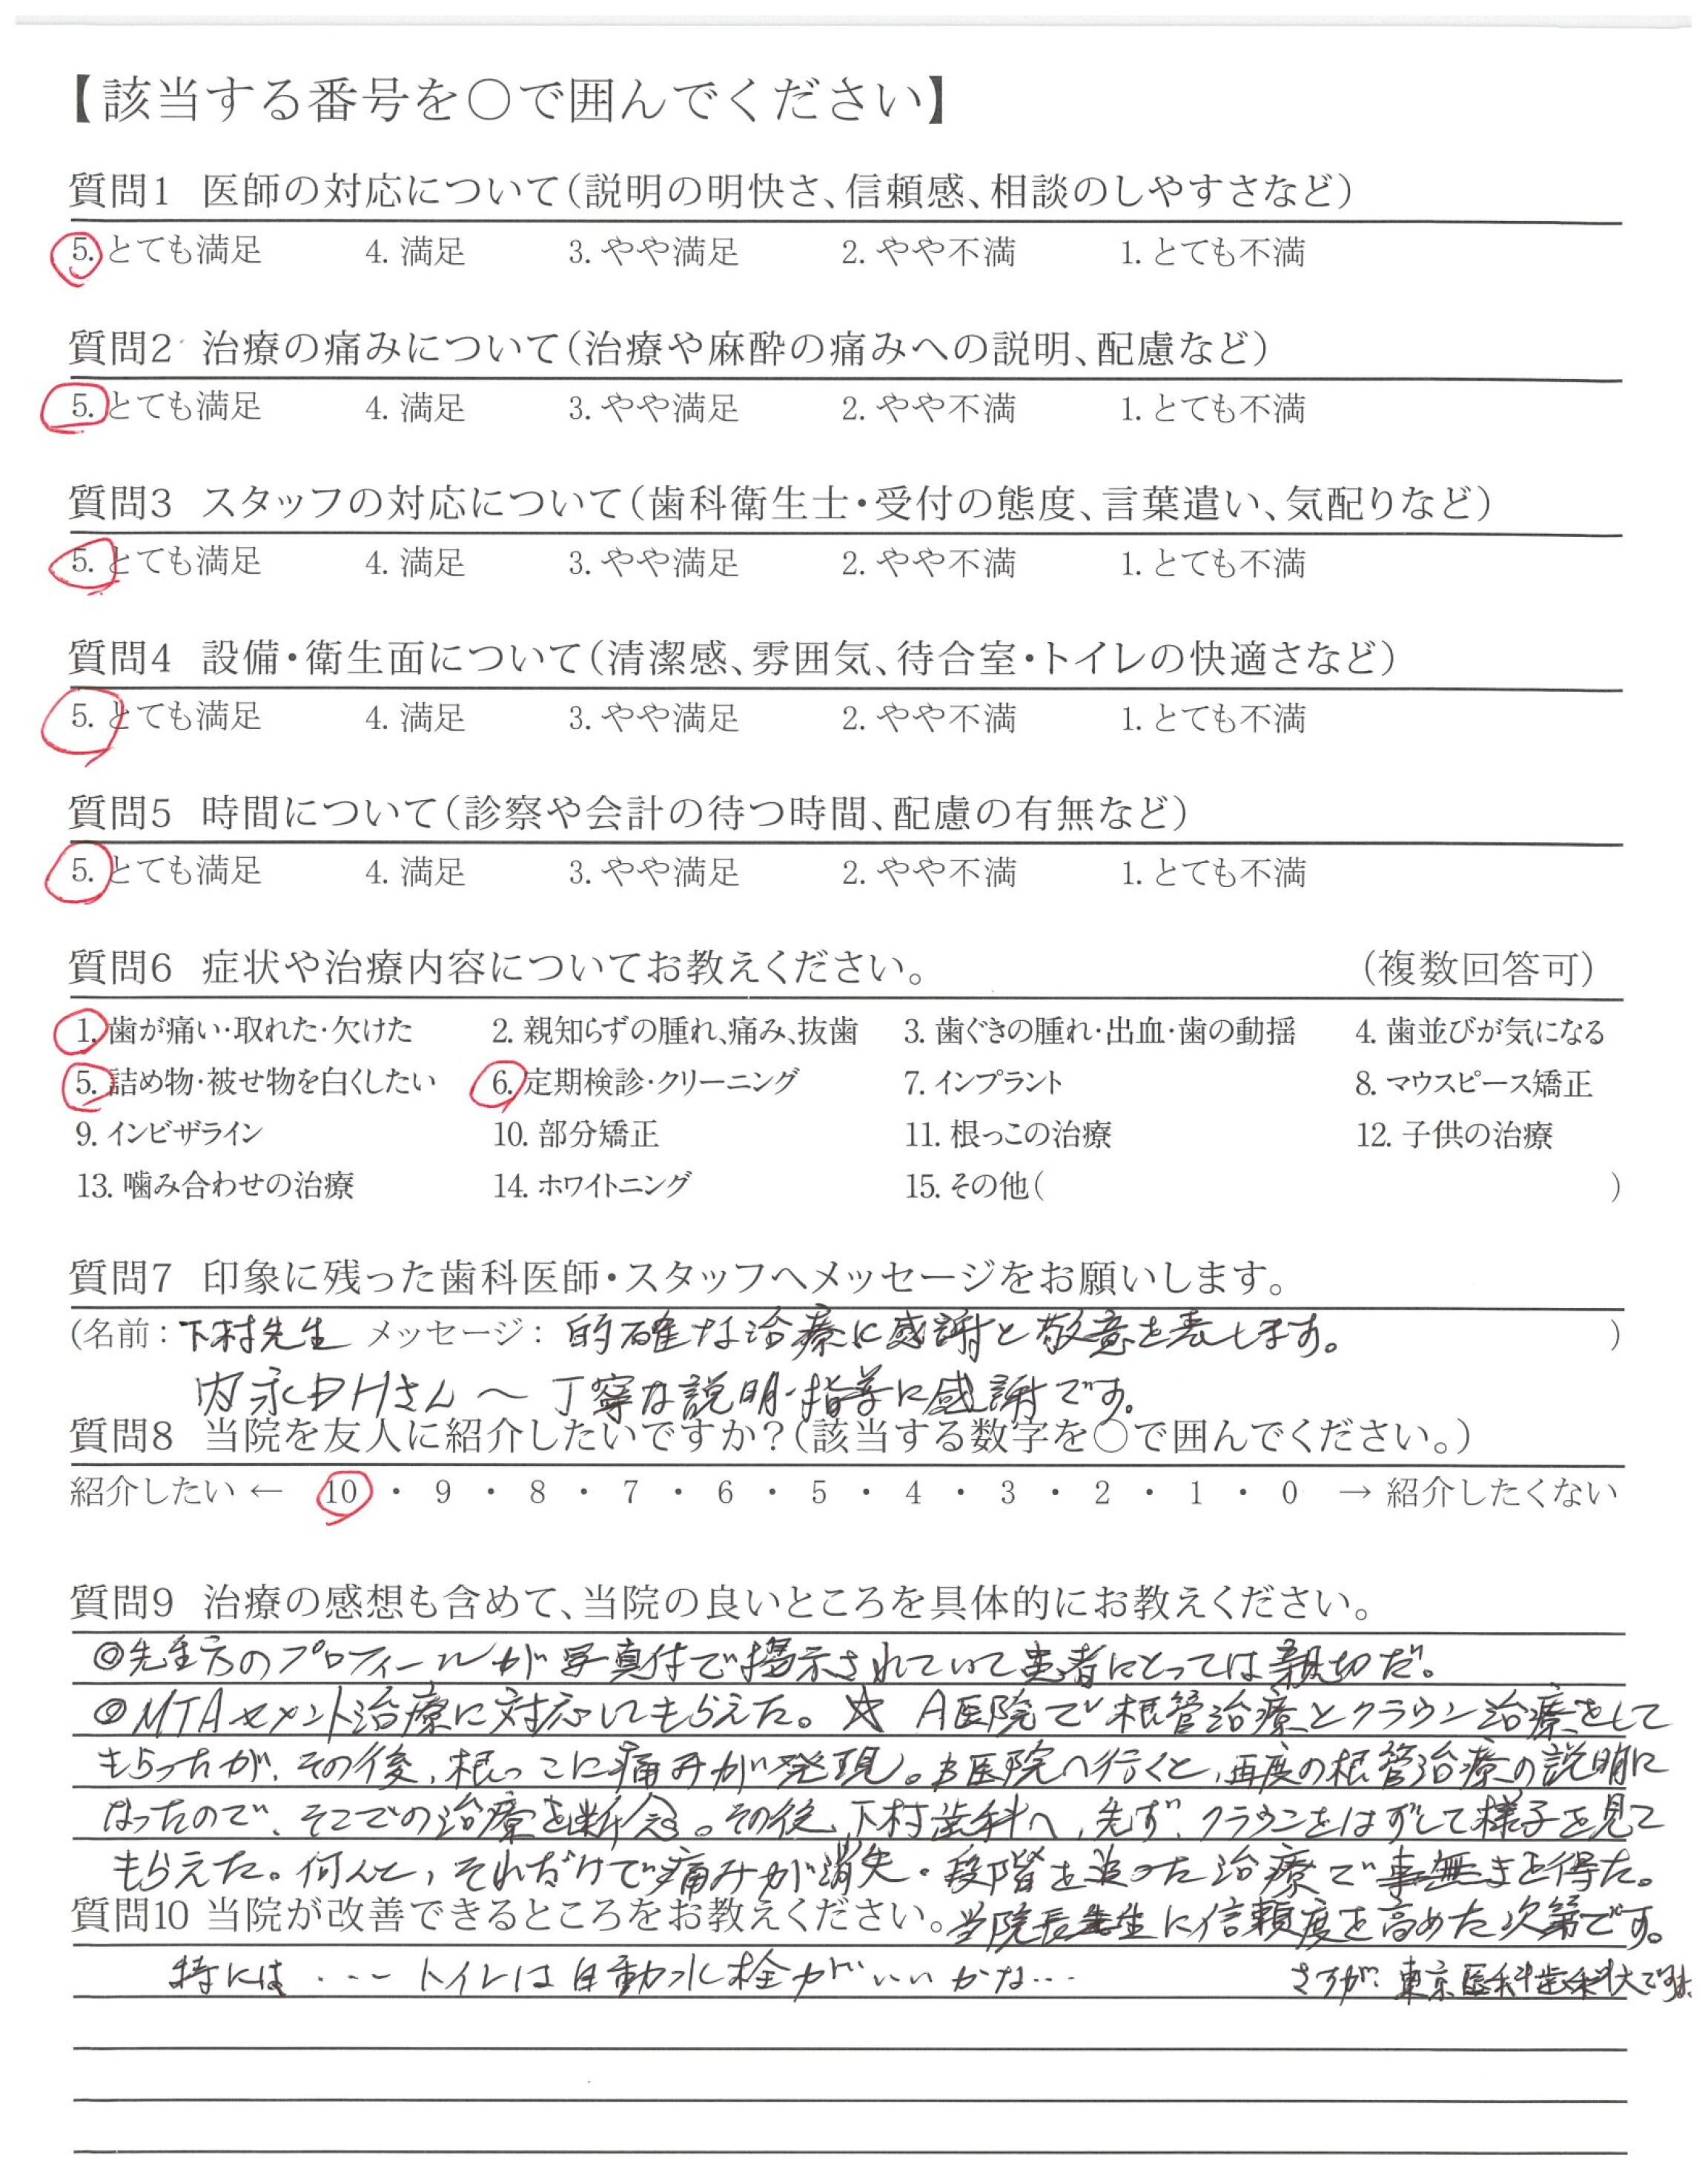 【該当する番号を○で囲んでください】
質問1 医師の対応について(説明の明快さ、信頼感、相談のしやすさなど)
5. とても満足 4. 満足 3. やや満足 2. やや不満 1. とても不満
質問2 治療の痛みについて(治療や麻酔の痛みへの説明、配慮など)
5. とても満足 4. 満足 3. やや満足 2. やや不満 1. とても不満
質問3 スタッフの対応について(歯科衛生士・受付の態度、言葉遣い、気配りなど)
5. とても満足 4. 満足 3. やや満足 2. やや不満 1. とても不満
質問4 設備・衛生面について(清潔感、雰囲気、待合室・トイレの快適さなど)
5. とても満足 4. 満足 3. やや満足 2. やや不満 1. とても不満
質問5 時間について(診察や会計の待つ時間、配慮の有無など)
5. とても満足 4. 満足 3. やや満足 2. やや不満 1. とても不満
質問6 症状や治療内容についてお教えください。 (複数回答可)
1. 歯が痛い・取れた・欠けた 2. 親知らずの腫れ、痛み、抜歯 3. 歯ぐきの腫れ・出血・歯の動揺 4. 歯並びが気になる
5. 詰め物・被せ物を白くしたい 6. 定期検診・クリーニング 7. インプラント 8. マウスピース矯正
9. インビザライン 10. 部分矯正 11. 根っこの治療 12. 子供の治療
13. 噛み合わせの治療 14. ホワイトニング 15. その他( )
質問7 印象に残った歯科医師・スタッフへメッセージをお願いします。
(名前:下村先生 メッセージ:的確な治療に感謝と敬意を表します。 )
内永DHさん〜丁寧な説明・指導に感謝です。
質問8 当院を友人に紹介したいですか?(該当する数字を○で囲んでください。)
紹介したい ← 10 ・ 9 ・ 8 ・ 7 ・ 6 ・ 5 ・ 4 ・ 3 ・ 2 ・ 1 ・ 0 → 紹介したくない
質問9 治療の感想も含めて、当院の良いところを具体的にお教えください。
◎先生方のプロフィールが写真付で掲示されていて患者にとっては親切だ。
◎MTAセメント治療に対応してもらえた。☆ A医院で根管治療とクラウン治療をして
もらったが、その後、根っこに痛みが発現。B医院へ行くと、再度の根管治療の説明に
なったので、そこでの治療を断念。その後、下村歯科へ、先ず、クラウンをはずして様子を見て
もらえた。何んと、それだけで痛みが消失・段階を追った治療で事無きを得た。
質問10 当院が改善できるところをお教えください。当院長先生に信頼度を高めた次第です。
特には・・・トイレは自動水栓がいいかな… さすが、東京医科歯科大ですね。